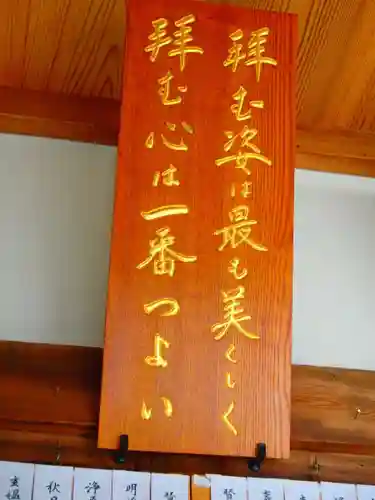 拝む姿は最も美しく
拝む心は一番つよい